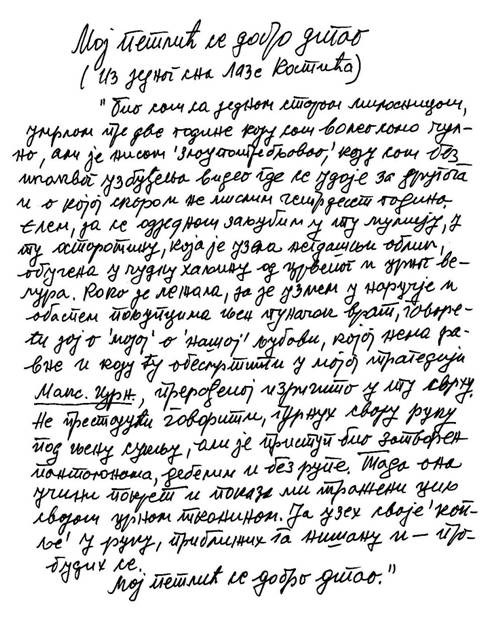 Мој петлић се добро дигао
(Из једног сна Лазе Костића)
"Био сам са једном старом милосницом,
умрлом пре две године коју сам волео само чул-
но, али је нисам 'злоупотребљавао,' коју сам без
икаквог узбуђења видео где се удаје за другога
и о којој скоро не мислим четрдесет година
кад, да се одједном заљубим у ту мумију, у
ту астоpотињу, која је узела негдашњи облик,
обучена у чудну хаљину од црвеног и црног ве-
лура. Како је лежала, ја је узмем у наручје и
обаспем пољупцима њен пуначак врат, говоре-
ћи јој о 'мојој' о 'нашој' љубави, којој нема ра-
вне и коју ћу обесмртити у мојој трагедији
Макс. Црн., прерађеној изричито у ту сврху.
Не престајући говорити, гурнух своју руку
под њену сукњу, али је приступ био затворен
панталонама, дебелим и без рупе. Тада она
учини покрет и показа ми тражени циљ
својом црном тканином. Ја узех своје 'коп-
ље' у руку, приближих га нишану и — про-
будих се.
Мој петлић се добро дигао."